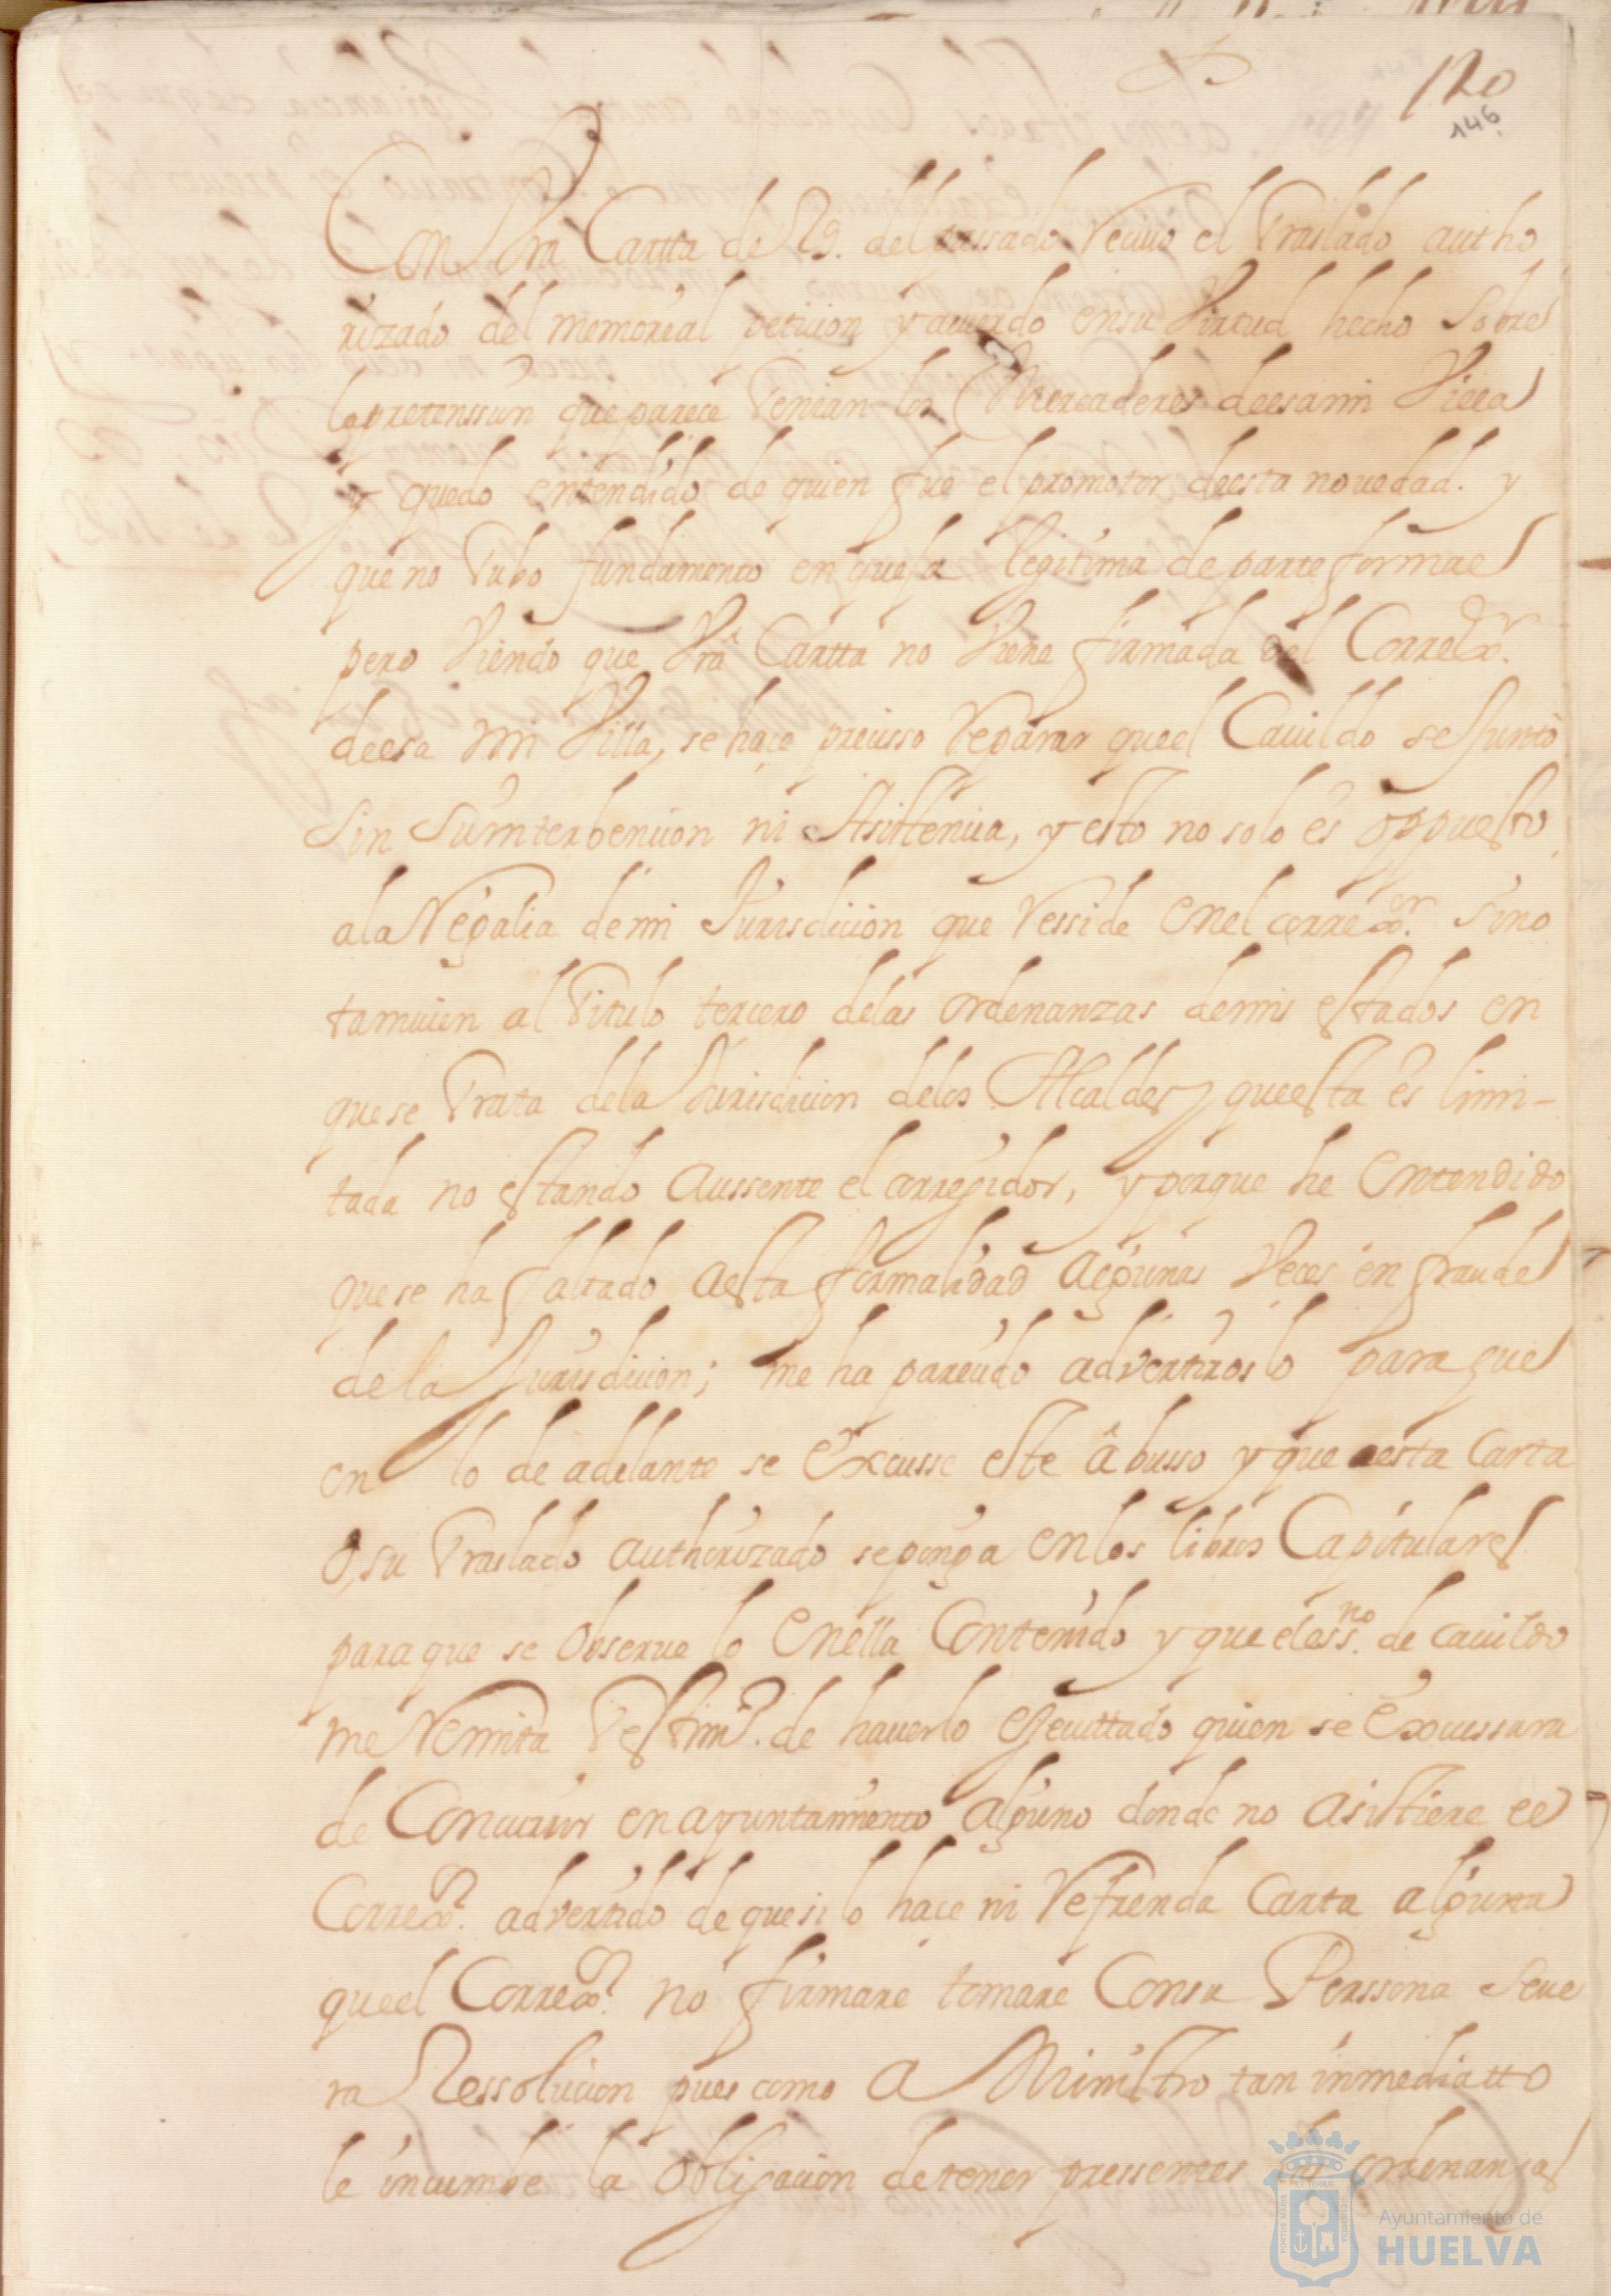 120
146
Con Vra Cartta de 29. del passado reciuo el traslado autho
rizado del memorial peticion y acuerdo en su Virtud hecho sobre
la pretenssion que parece tenian los Mercaderes de esa mi Villa
y quedo entendido de quien fue el promotor de esta nouedad. y
que no tubo fundamento en quexa legitima de parte formal
pero Viendo que Vrâ Cartta no Viene firmada del Correxor.
de esa mi Villa, se haçe preçisso reparar que el Cauildo se Juntò
sin su interbencion ni Asistencia, y esto no solo es oppuesto
a la Regalia de mi Jurisdicion que resside en el correxor. sino
tamuien al titulo tercero de las ordenanzas de mis estados en
que se trata de la Jurisdicion de los Alcaldes que esta es limi-
tada no estando aussente el corregidor, y porque he entendido
que se ha faltado a esta formalidad algunas Veces en fraude
de la Jurisdicion; me ha parecido advertiroslo para que
en lo de adelante se excusse este âbusso y que esta Carta
o, su traslado authorizado se ponga en los libros Capitulares
para que se observe lo en ella Contenido y que el essno. de cauildo
me remita testimo. de hauerlo ejecuttado quien se excussara
de Concurrir en ayuntamiento alguno donde no asistiere el
Correxor. advertido de que si lo hace ni refrenda Carta alguna
que el Correxor. no firmare tomare Con su Perssona seue
ra Ressolucion pues como a Ministro tan inmediatto
le incumbe la obligacion de tener pressentes las ordenanzas
Ayuntamiento de
HUELVA